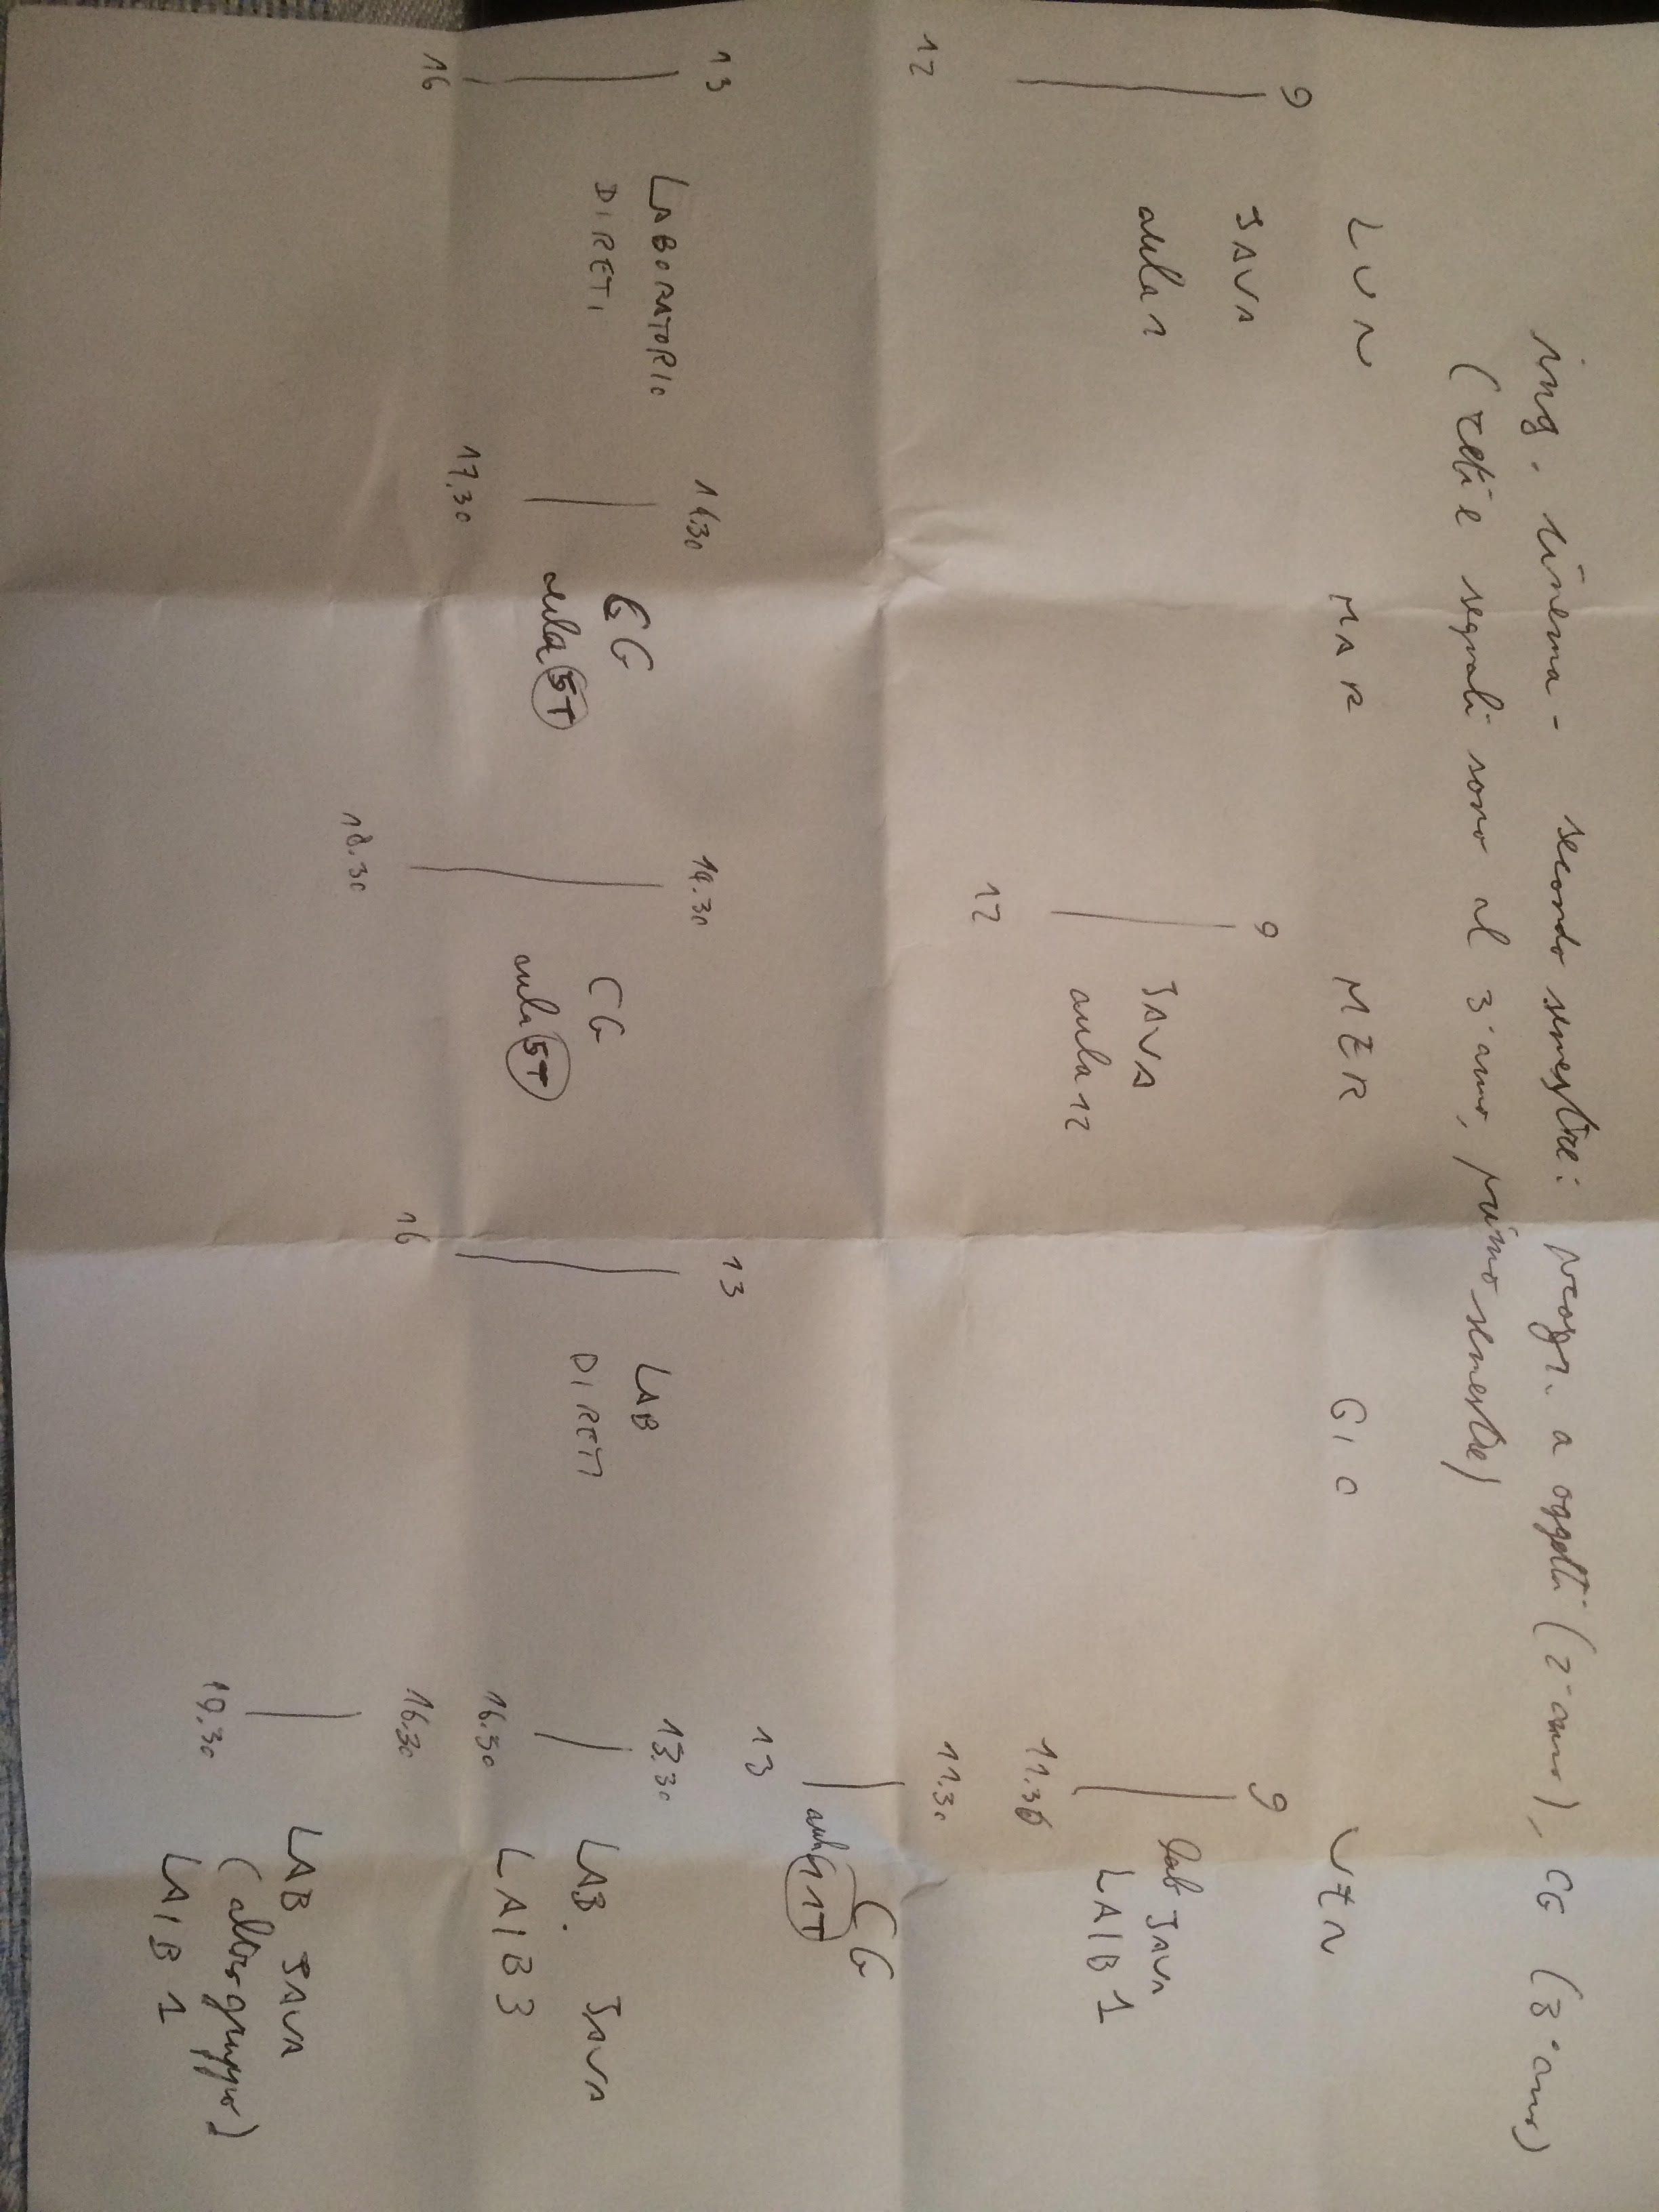 ing. cinema - secondo semestre: progr. a oggetti (2° anno), CG (3° anno)
(reti e segnali sono al 3° anno, primo semestre)
LUN
9
12
JAVA
aula 1
13
16
LABORATORIO
DI RETI
MAR
14.30
17.30
CG
aula 5T
MER
9
12
JAVA
aula 12
14.30
18.30
CG
aula 5T
GIO
13
16
LAB
DI RETI
VEN
9
11.30
lab JAVA
LAIB 1
11.30
13
CG
aula 11T
13.30
16.30
LAB. JAVA
LAIB 3
16.30
19.30
LAB JAVA
(altro gruppo)
LAIB 1